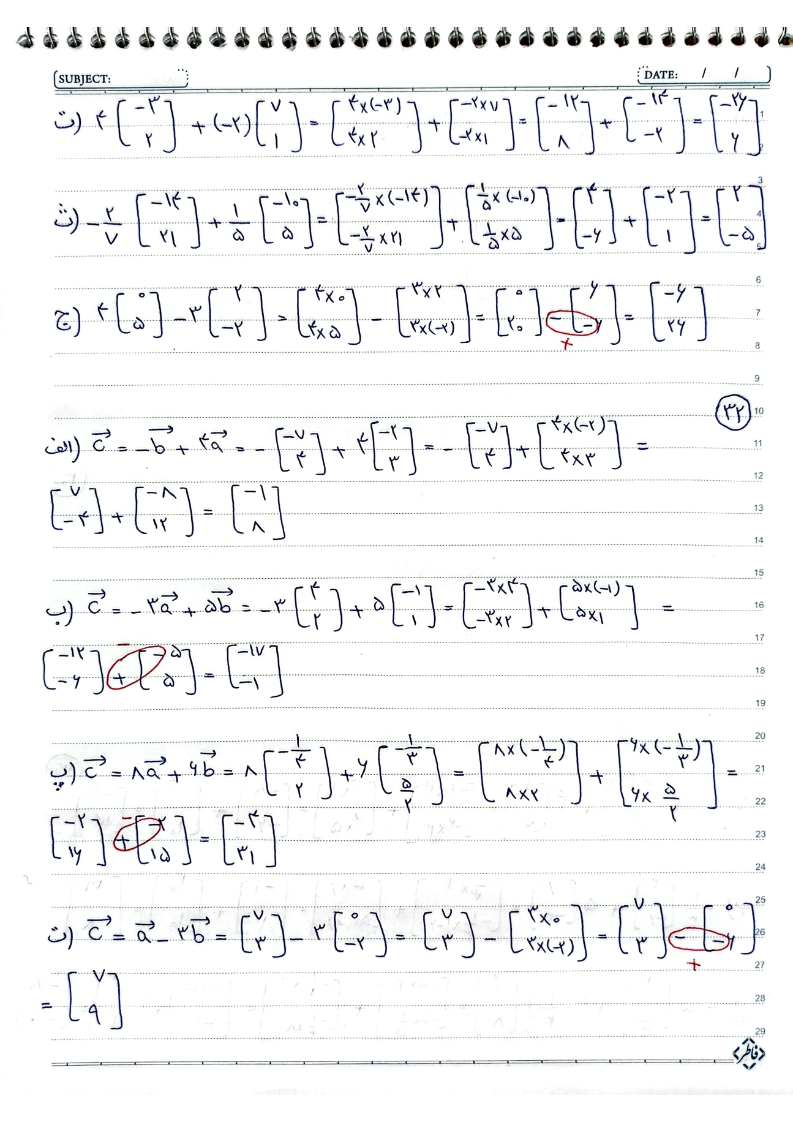 SUBJECT: DATE: / /
ت) ۴[−۳ ۲] + (−۲)[۷ ۱] = [۴×(−۳) ۴×۲] + [−۲×۷ −۲×۱] = [−۱۲ ۸] + [−۱۴ −۲] = [−۲۶ ۶]
ث) −۲/۷[−۱۴ ۲۱] + ۱/۵[−۱۰ ۵] = [−۲/۷×(−۱۴) −۲/۷×۲۱] + [۱/۵×(−۱۰) ۱/۵×۵] = [۴ −۶] + [−۲ ۱] = [۲ −۵]
ج) ۴[۰ ۵] − ۳[۲ −۲] = [۴×۰ ۴×۵] − [۳×۲ ۳×(−۲)] = [۰ ۲۰] − [۶ −۶] = [−۶ ۲۶]
+
۳۲
الف) c⃗ = −b⃗ + ۴a⃗ = −[−۷ ۴] + ۴[−۲ ۳] = −[−۷ ۴] + [۴×(−۲) ۴×۳] =
[۷ −۴] + [−۸ ۱۲] = [−۱ ۸]
ب) c⃗ = −۳a⃗ + ۵b⃗ = −۳[۴ ۲] + ۵[−۱ ۱] = [−۳×۴ −۳×۲] + [۵×(−۱) ۵×۱] =
[−۱۲ −۶] + [−۵ ۵] = [−۱۷ −۱]
پ) c⃗ = ۸a⃗ + ۶b⃗ = ۸[−۱/۴ ۲] + ۶[−۱/۳ ۵/۲] = [۸×(−۱/۴) ۸×۲] + [۶×(−۱/۳) ۶×۵/۲] =
[−۲ ۱۶] + [−۲ ۱۵] = [−۴ ۳۱]
ت) c⃗ = a⃗ − ۳b⃗ = [۷ ۳] − ۳[۰ −۲] = [۷ ۳] − [۳×۰ ۳×(−۲)] = [۷ ۳] − [۰ −۶]
+
= [۷ ۹]
فاطر